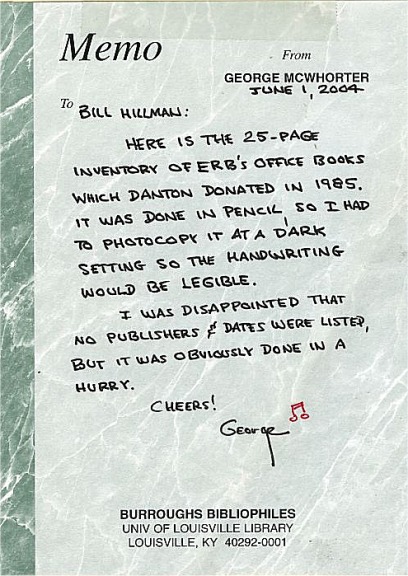 Memo
From
GEORGE MCWHORTER
JUNE 1, 2004
To BILL HILLMAN:
HERE IS THE 25-PAGE
INVENTORY OF ERB'S OFFICE BOOKS
WHICH DANTON DONATED IN 1985.
IT WAS DONE IN PENCIL, SO I HAD
TO PHOTOCOPY IT AT A DARK
SETTING SO THE HANDWRITING
WOULD BE LEGIBLE.
I WAS DISAPPOINTED THAT
NO PUBLISHERS & DATES WERE LISTED,
BUT IT WAS OBVIOUSLY DONE IN A
HURRY.
CHEERS!
George
BURROUGHS BIBLIOPHILES
UNIV OF LOUISVILLE LIBRARY
LOUISVILLE, KY 40292-0001